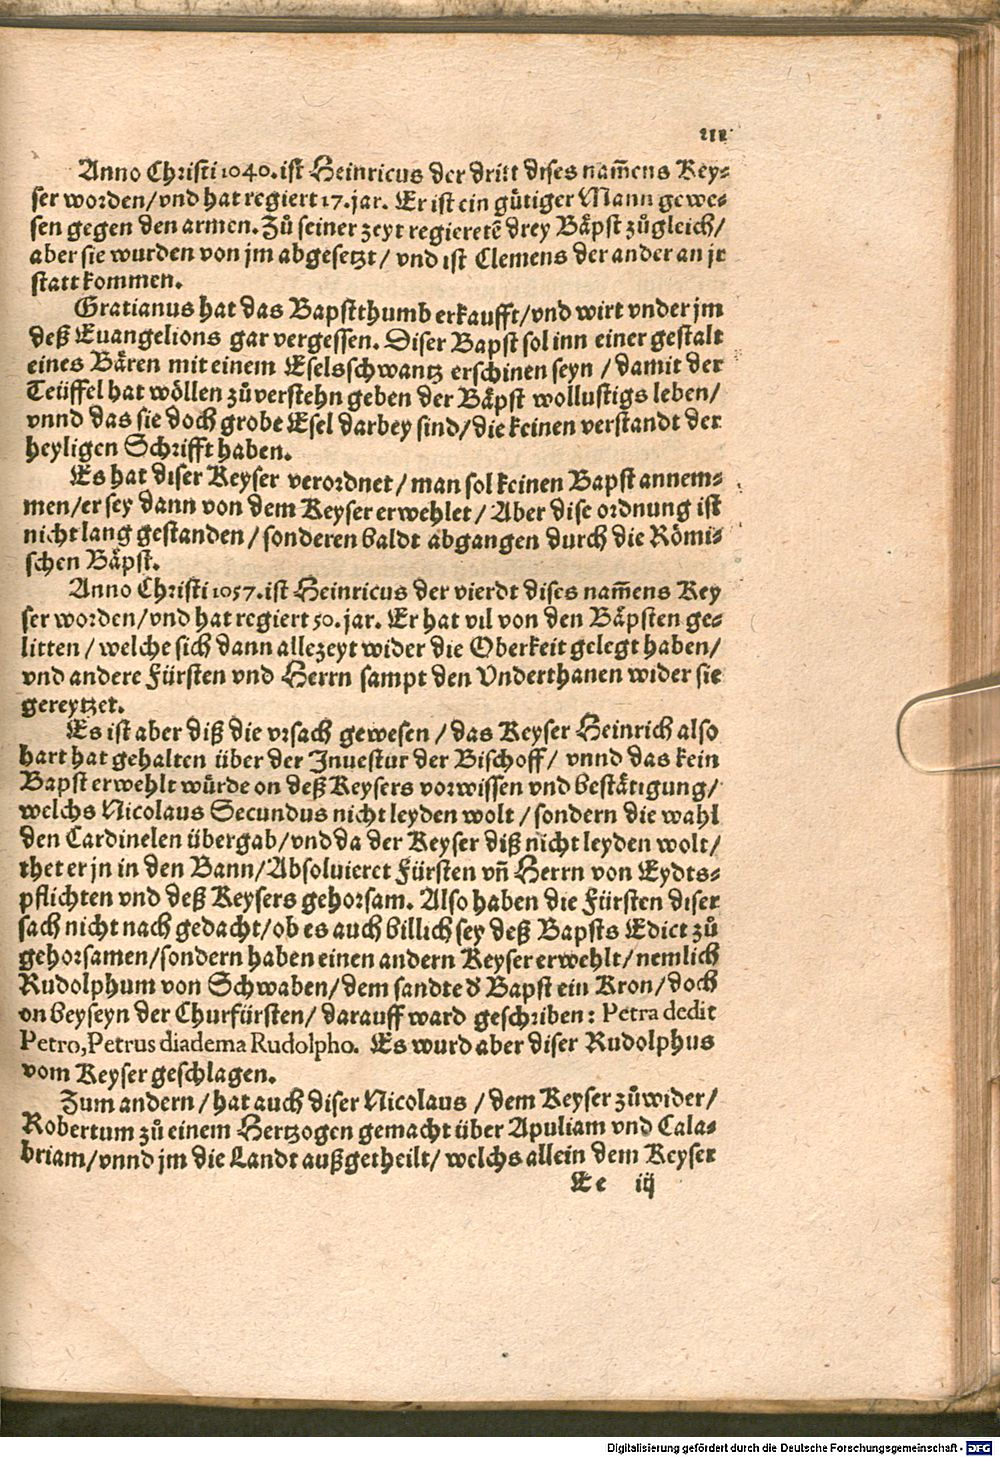 111
Anno Christi 1040. ist Heinricus der dritt dises nam̃ens Key-
ser worden/vnd hat regiert 17. jar. Er ist ein gütiger Mann gewe-
sen gegen den armen. Zů seiner zeyt regieretẽ drey Bäpst zůgleich/
aber sie wurden von jm abgesetzt/ vnd ist Clemens der ander an jr
statt kommen.
Gratianus hat das Bapstthumb erkaufft/vnd wirt vnder jm
deß Euangelions gar vergessen. Diser Bapst sol inn einer gestalt
eines Bären mit einem Eselsschwantz erschinen seyn / damit der
Teüffel hat wöllen zůverstehn geben der Bäpst wollustigs leben/
vnnd das sie doch grobe Esel darbey sind/die keinen verstandt der
heyligen Schrifft haben.
Es hat diser Keyser verordnet/man sol keinen Bapst annem-
men/er sey dann von dem Keyser erwehlet/ Aber dise ordnung ist
nicht lang gestanden/sonderen baldt abgangen durch die Römi-
schen Bäpst.
Anno Christi 1057. ist Heinricus der vierdt dises nam̃ens Key
ser worden/vnd hat regiert 50. jar. Er hat vil von den Bäpsten ge-
litten/welche sich dann allezeyt wider die Oberkeit gelegt haben/
vnd andere Fürsten vnd Herrn sampt den Vnderthanen wider sie
gereytzet.
Es ist aber diß die vrsach gewesen/das Keyser Heinrich also
hart hat gehalten über der Inuestur der Bischoff/ vnnd das kein
Bapst erwehlt würde on deß Keysers vorwissen vnd bestätigung/
welchs Nicolaus Secundus nicht leyden wolt/sondern die wahl
den Cardinelen übergab/vnd da der Keyser diß nicht leyden wolt/
thet er jn in den Bann/Absoluieret Fürsten vñ Herrn von Eydts-
pflichten vnd deß Keysers gehorsam. Also haben die Fürsten diser
sach nicht nach gedacht/ob es auch billich sey deß Bapsts Edict zů
gehorsamen/sondern haben einen andern Keyser erwehlt/nemlich
Rudolphum von Schwaben/dem sandte d̕ Bapst ein Kron/doch
on beyseyn der Churfürsten/ darauff ward geschriben: Petra dedit
Petro, Petrus diadema Rudolpho. Es wurd aber diser Rudolphus
vom Keyser geschlagen.
Zum andern/hat auch diser Nicolaus /dem Keyser zůwider/
Robertum zů einem Hertzogen gemacht über Apuliam vnd Cala-
briam/vnnd jm die Landt außgetheilt/welchs allein dem Keyser
Ee iij
Digitalisierung gefördert durch die Deutsche Forschungsgemeinschaft - DFG